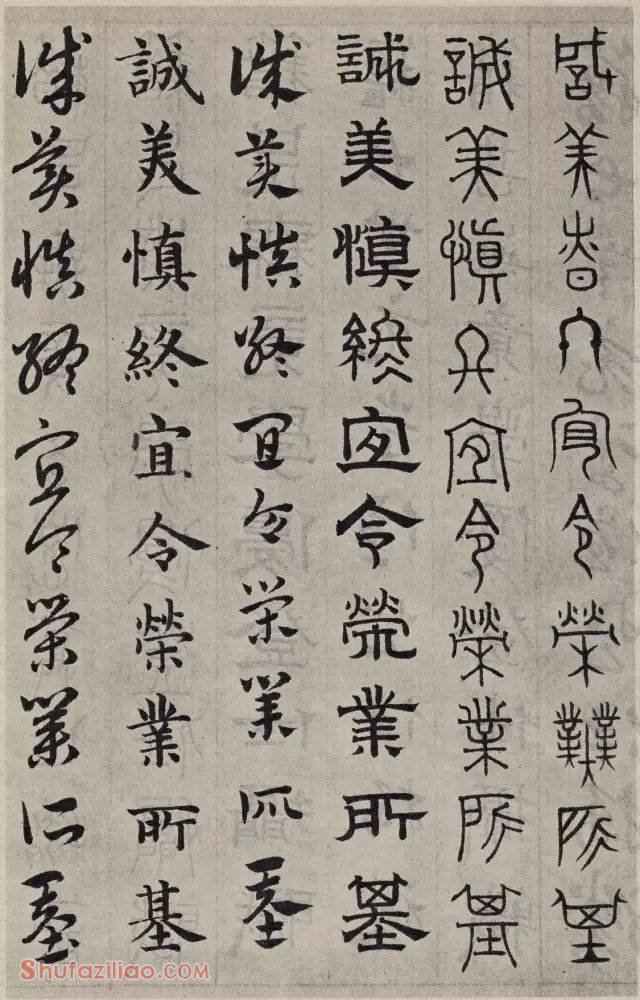 誠美慎終宜令榮業所基
誠美慎終宜令榮業所基
誠美慎終宜令榮業所基
誠美慎終宜令榮業所基
誠美慎終宜令榮業所基
誠美慎終宜令榮業所基
Shufaziliao.com